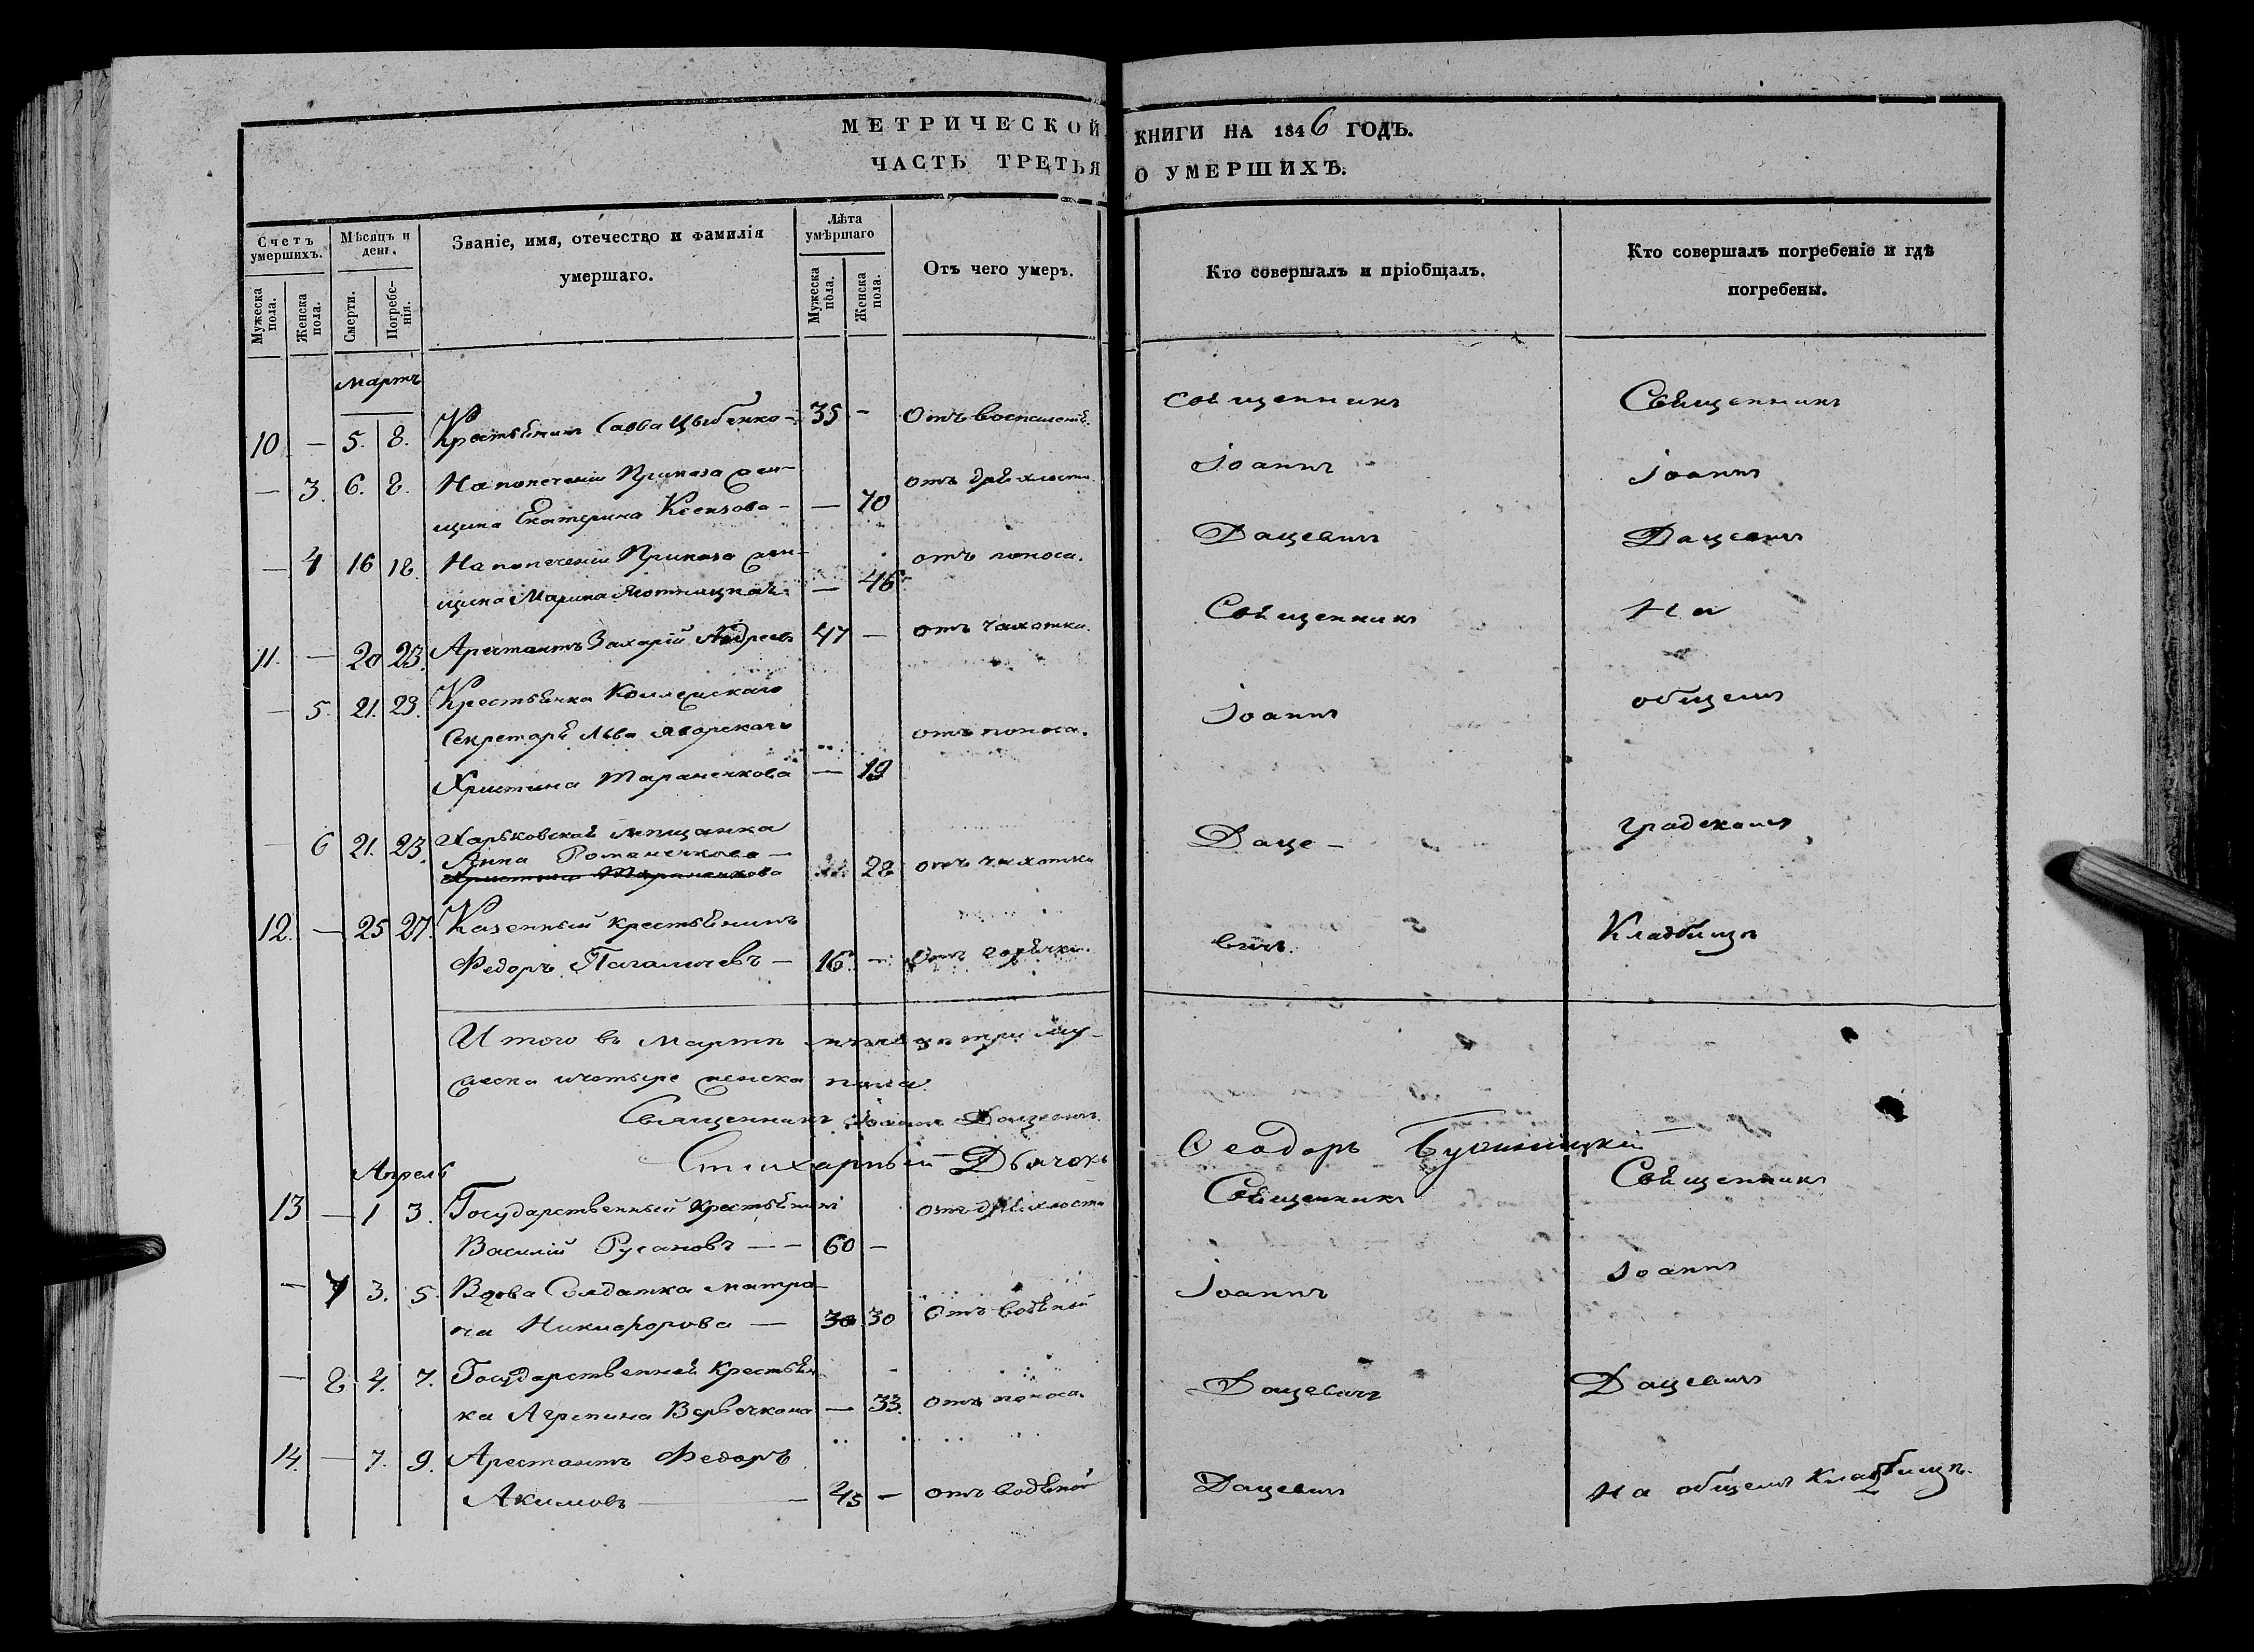 МЕТРИЧЕСКОЙ КНИГИ НА 1846 ГОДЪ.
ЧАСТЬ ТРЕТЬЯ О УМЕРШИХЪ.
Счетъ умершихъ.
Мужеска пола.
Женска пола.
Мѣсяцъ и день.
Смерти.
Погребенія.
Званіе, имя, отечество и фамилія умершаго.
Лѣта умѣршаго
Мужеска пола.
Женска пола.
Отъ чего умеръ.
Кто совершалъ и пріобщалъ.
Кто совершалъ погребеніе и гдѣ погребены.
Мартъ
10 — 5. 8. Крестьянинъ Савва Цыбенко — 35 — Отъ воспаленія
— 3. 6. 8. На попеченіи Приказа жен-
щина Екатерина — 70 отъ дряхлости
— 4 16 18. На попеченіи Приказа жен-
щина Марина — 46 отъ поноса.
11. — 20 23. Арестантъ Захарій Андреевъ 47 — отъ чахотки.
— 5. 21. 23. Крестьянка Коллежскаго
Секретаря Льва Яворскаго отъ поноса.
Христина Таранечкова — 19
— 6 21. 23. Харьковская мѣщанка
Анна Романечкова — 28 отъ чахотки
Христина Таранечкова
12. — 25 27. Казенный крестьянинъ
Федоръ — 16. — Отъ горячки.
Священникъ
Іоаннъ
Дацевичъ
Священникъ
Іоаннъ
Даце-
вичъ.
Священникъ
Іоаннъ
Дацевичъ
На
общемъ
градскомъ
Кладбищѣ
Итого въ Мартѣ мѣсяцѣ три му-
жеска и четыре женска пола.
Священникъ Іоаннъ Дацевичъ.
Стихарный Дьячокъ Ѳеодоръ
Апрель
13 — 1 3. Государственный Крестьянинъ отъ дряхлости
Василій Русановъ — — 60 —
— 7 3. 5. Вдова Солдатка Матро-
на Никифорова — 30 30 Отъ водяной
— 8 4. 7. Государственная Крестьян-
ка Агрепина — 33. отъ поноса.
14. — 7. 9. Арестантъ Федоръ
Акимовъ — 45 — отъ водяной
Священникъ
Іоаннъ
Дацевичъ
Дацевичъ
Священникъ
Іоаннъ
Дацевичъ
На общемъ Кладбищѣ.